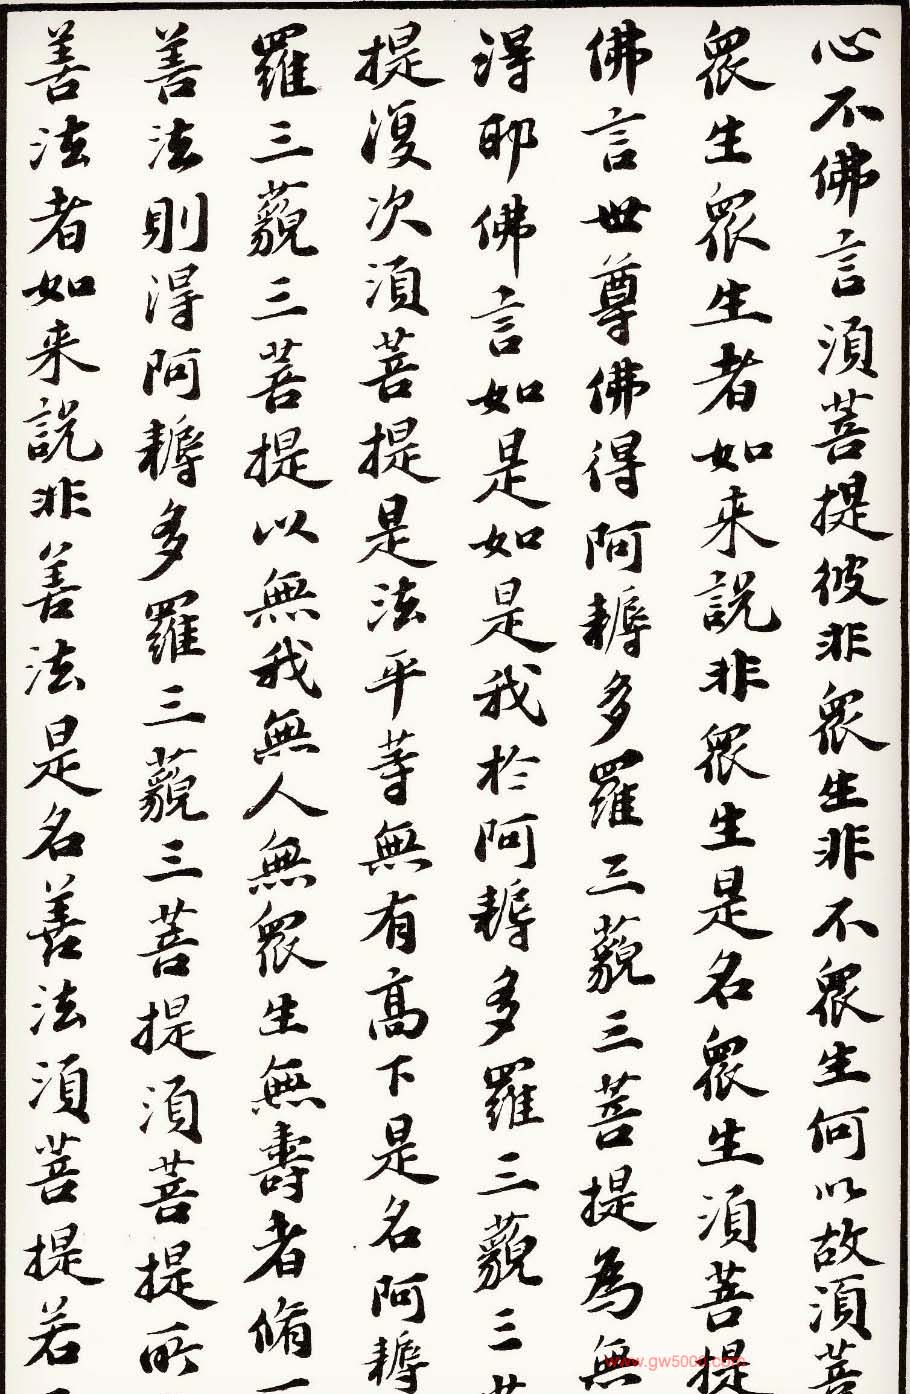 心不佛言須菩提彼非眾生非不眾生何以故須菩
眾生眾生者如来說非眾生是名眾生須菩提
佛言世尊佛得阿耨多羅三藐三菩提為無
得耶佛言如是如是我於阿耨多羅三藐三菩
提復次須菩提是法平等無有高下是名阿耨
羅三藐三菩提以無我無人無眾生無壽者脩一
善法則得阿耨多羅三藐三菩提須菩提所
善法者如来說非善法是名善法須菩提若
www.gw500.com